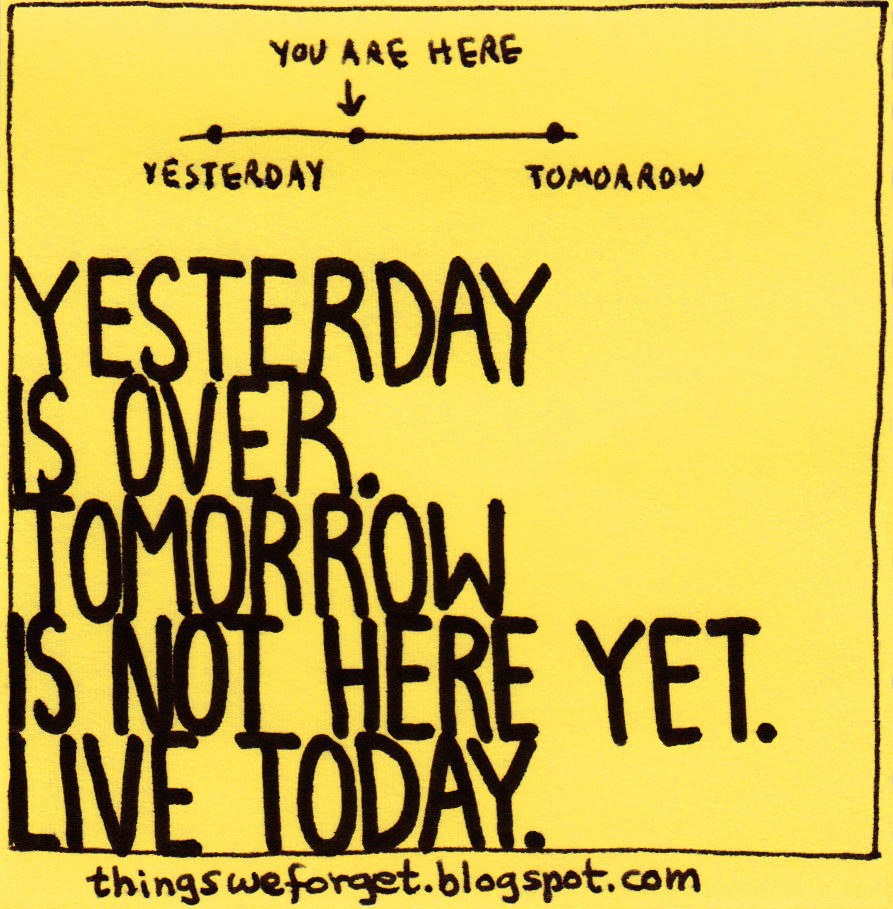 YOU ARE HERE
YESTERDAY TOMORROW
YESTERDAY
IS OVER.
TOMORROW
IS NOT HERE YET.
LIVE TODAY.
thingsweforget.blogspot.com